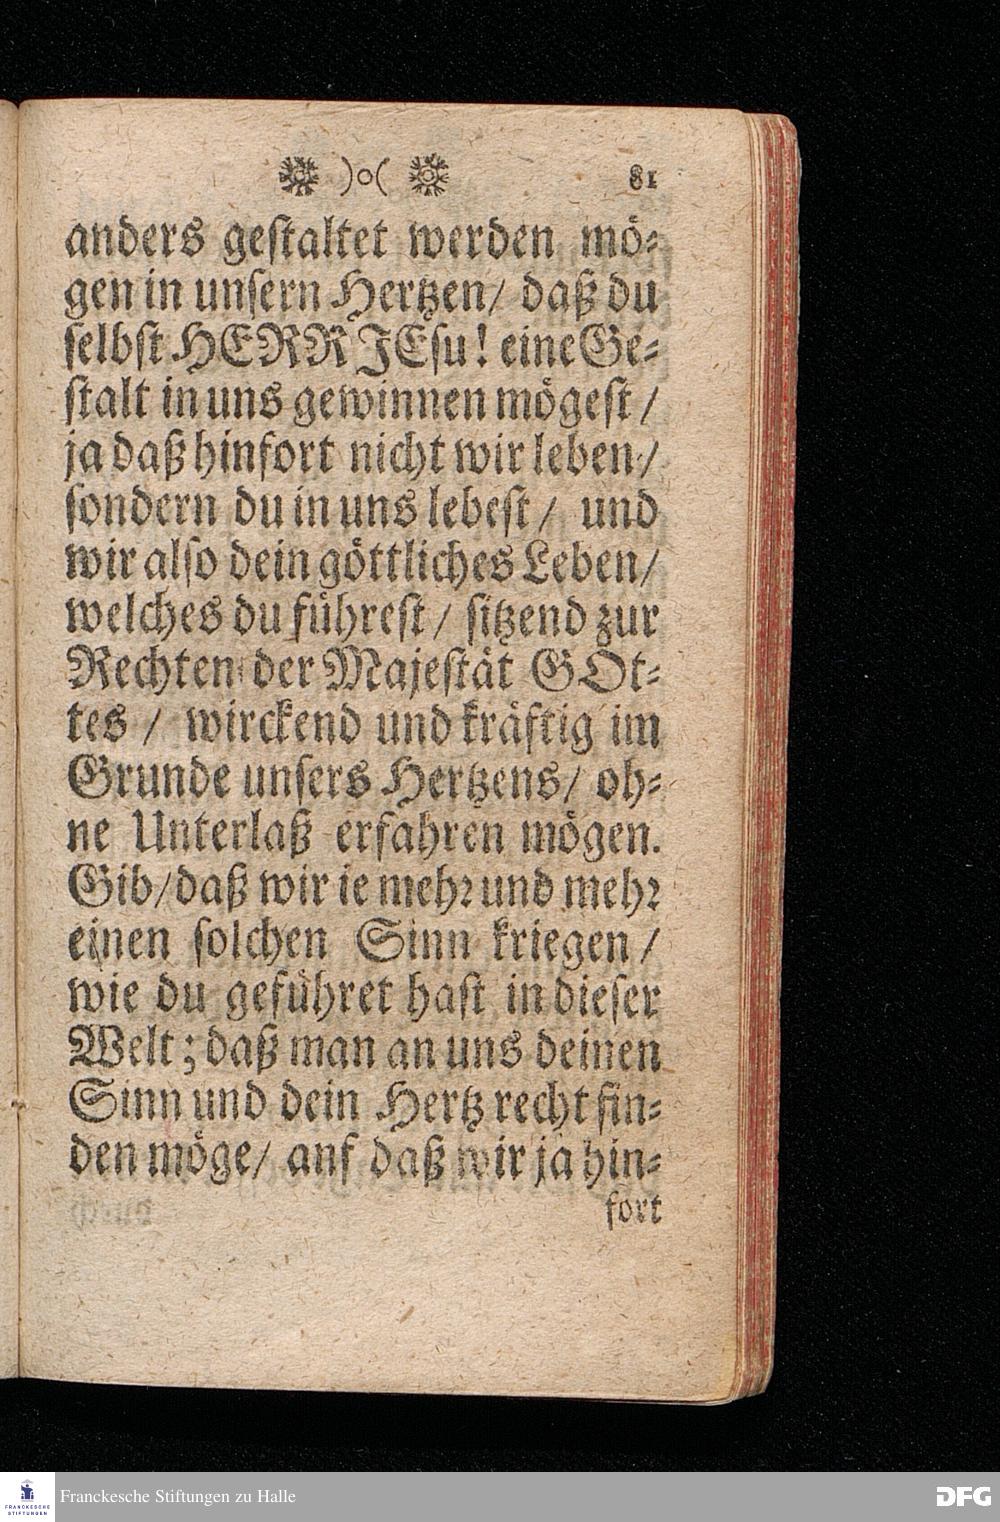 )o( 81
anders geſtaltet werden mö⸗
gen in unſern Hertzen/ daß du
ſelbſt HERR JEſu! eine Ge⸗
ſtalt in uns gewinnen mögeſt/
ja daß hinfort nicht wir leben/
ſondern du in uns lebeſt/ und
wir alſo dein göttliches Leben/
welches du führeſt/ ſitzend zur
Rechten der Majeſtät GOt⸗
tes/ wirckend und kräftig im
Grunde unſers Hertzens/ oh⸗
ne Unterlaß erfahren mögen.
Gib/ daß wir ie mehr und mehr
einen ſolchen Sinn kriegen/
wie du geführet haſt in dieſer
Welt; daß man an uns deinen
Sinn und dein Hertz recht fin⸗
den möge/ anf daß wir ja hin⸗
fort
FRANCKESCHE STIFTUNGEN
Franckesche Stiftungen zu Halle
DFG